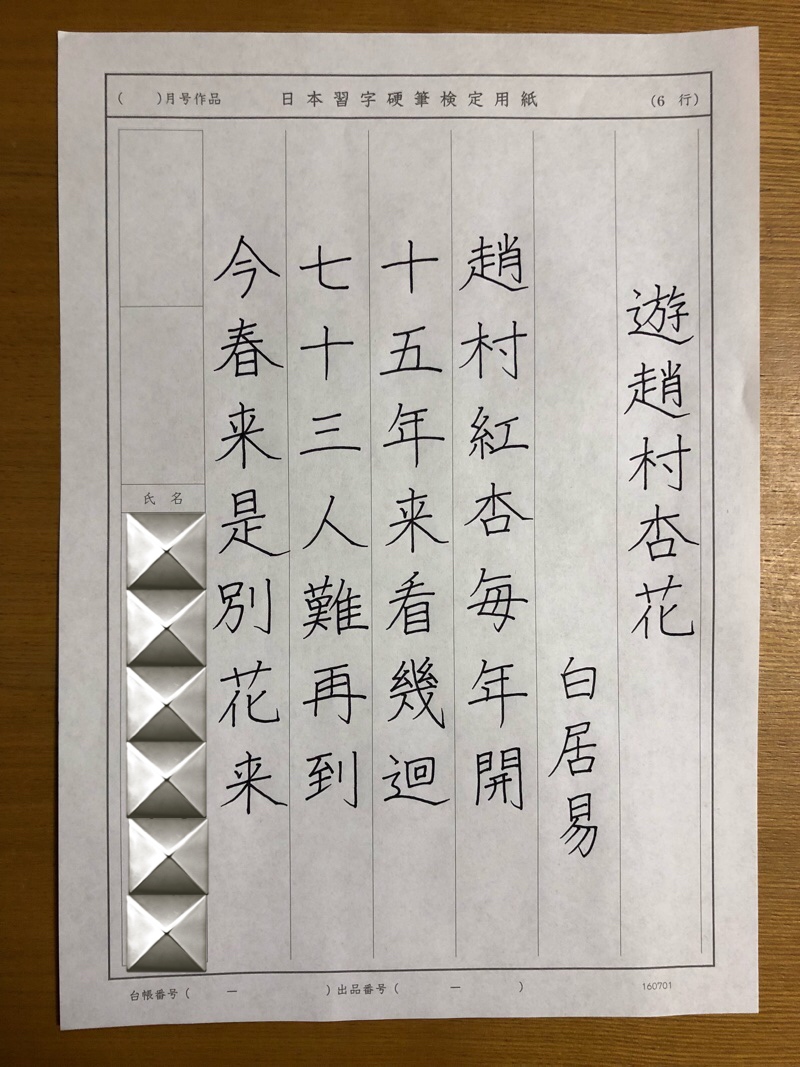 ( )月号作品 日本習字硬筆検定用紙 (6 行)
遊趙村杏花
白居易
趙村紅杏毎年開
十五年来看幾迴
七十三人難再到
今春来是別花来
氏 名
台帳番号( ー )出品番号( ー )
160701